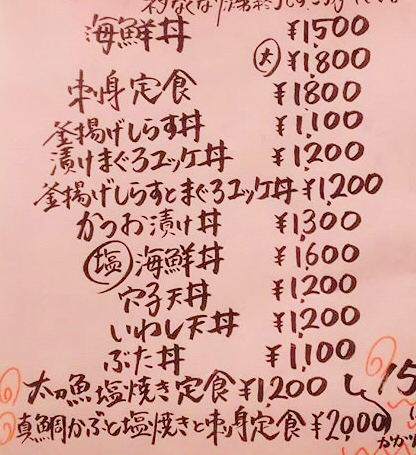 海鮮丼 ¥1500
大 ¥1,800
刺身定食 ¥1800
釜揚げしらす丼 ¥1,100
漬けまぐろユッケ丼 ¥1200
釜揚げしらすとまぐろユッケ丼 ¥1,200
かつお漬け丼 ¥1,300
塩 海鮮丼 ¥1600
穴子天丼 ¥1200
いわし天丼 ¥1200
ぶた丼 ¥1,100
太刀魚塩焼き定食 ¥1,200
真鯛かぶと塩焼きと刺身定食 ¥2,000